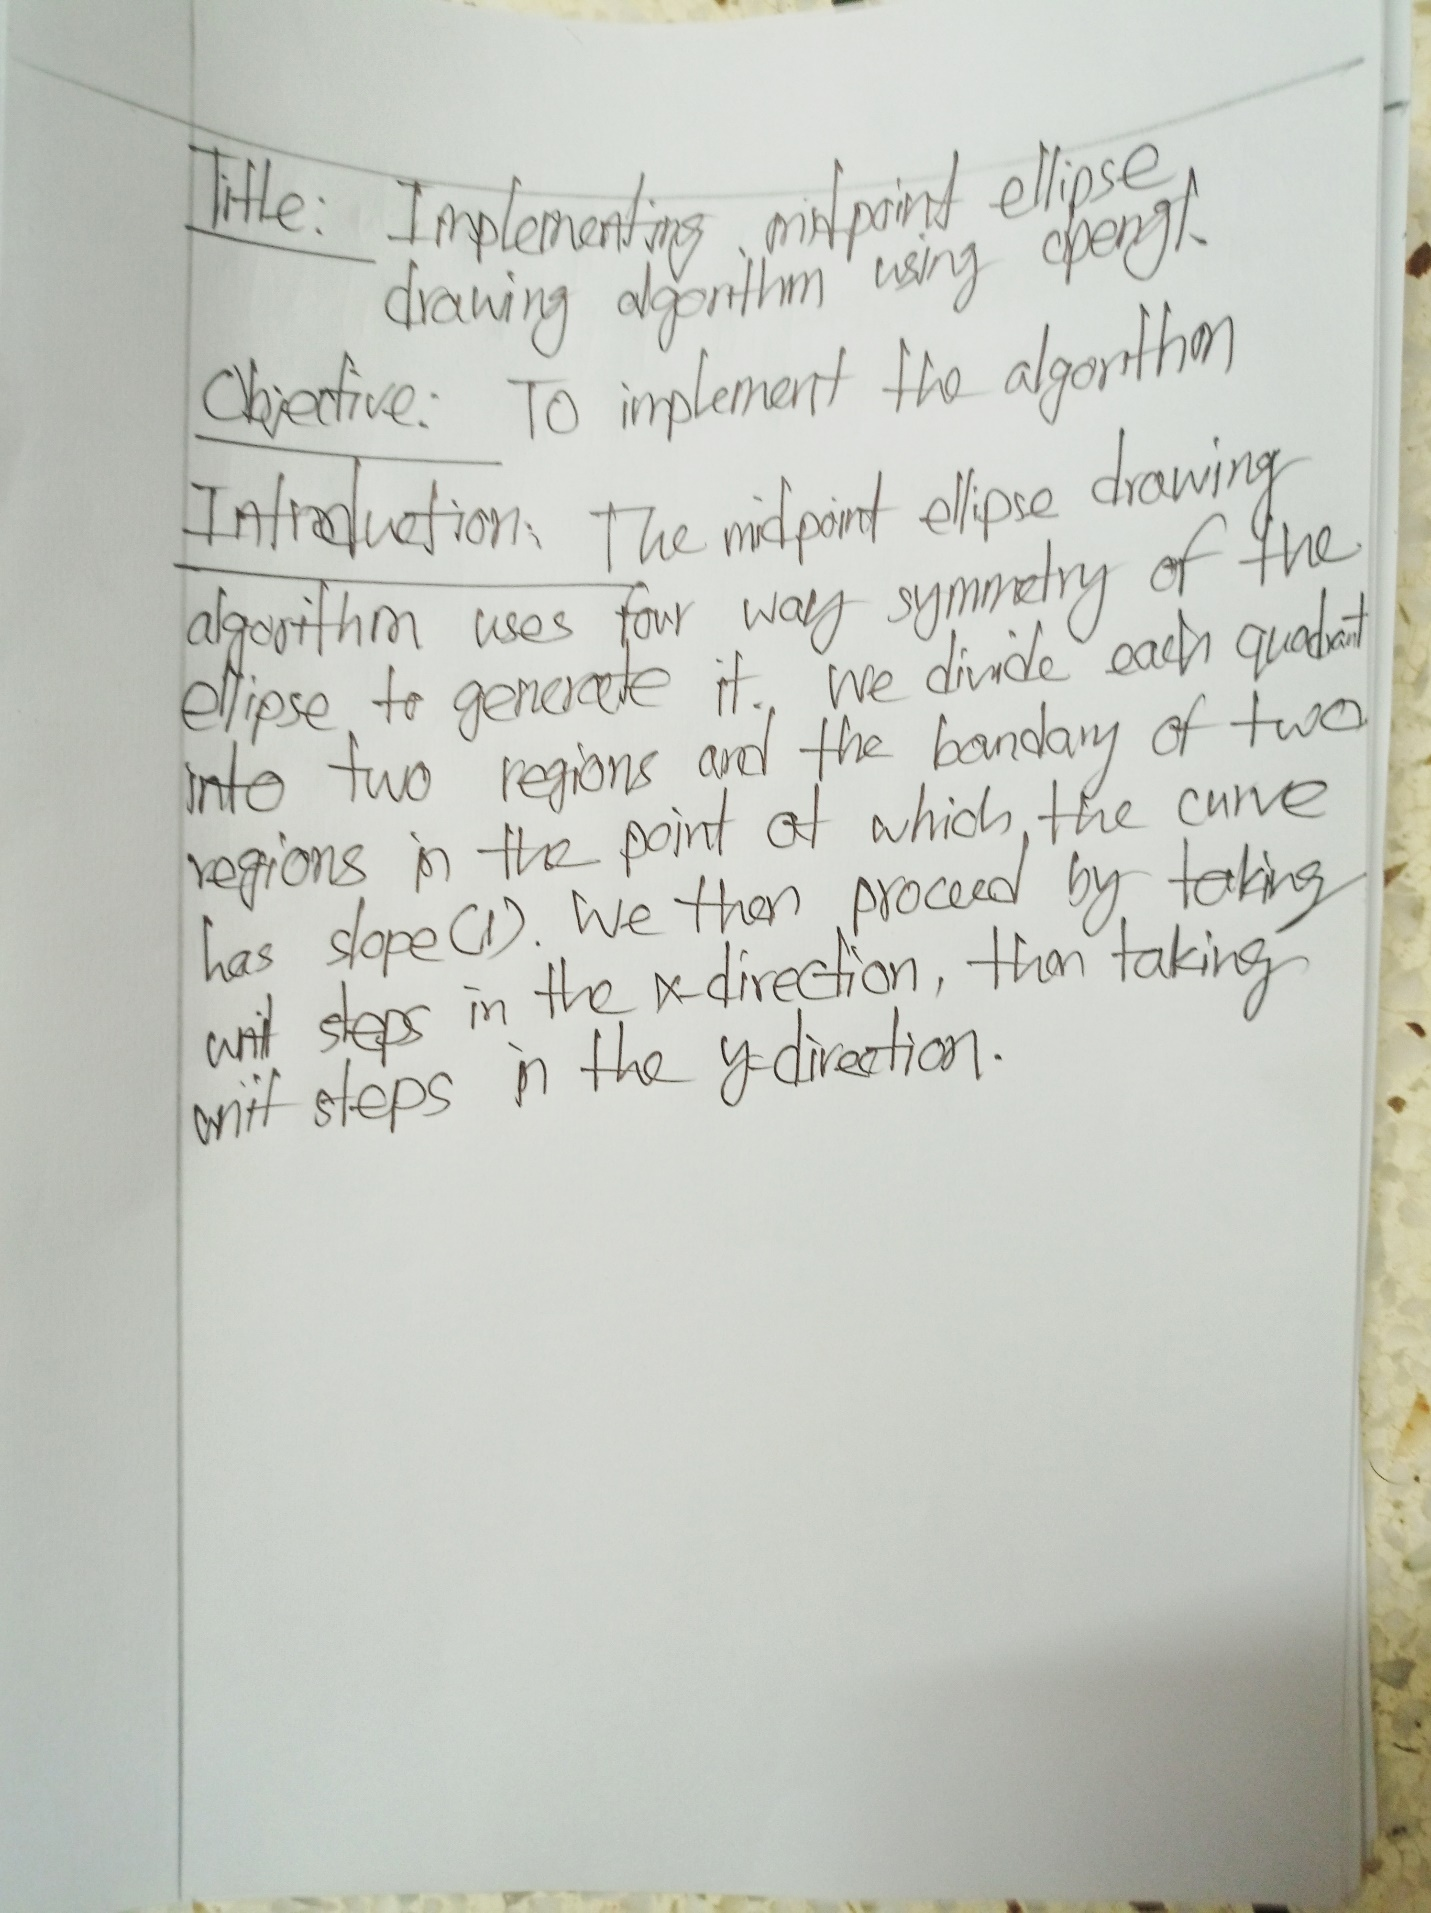 Title: Implementing midpoint ellipse
drawing algorithm using opengl.
Objective: To implement the algorithm
Introduction: The midpoint ellipse drawing
algorithm uses four way symmetry of the
ellipse to generate it. We divide each quadrant
into two regions and the boundary of two
regions in the point at which the curve
has slope(1). We then proceed by taking
unit steps in the x-direction, then taking
unit steps in the y-direction.